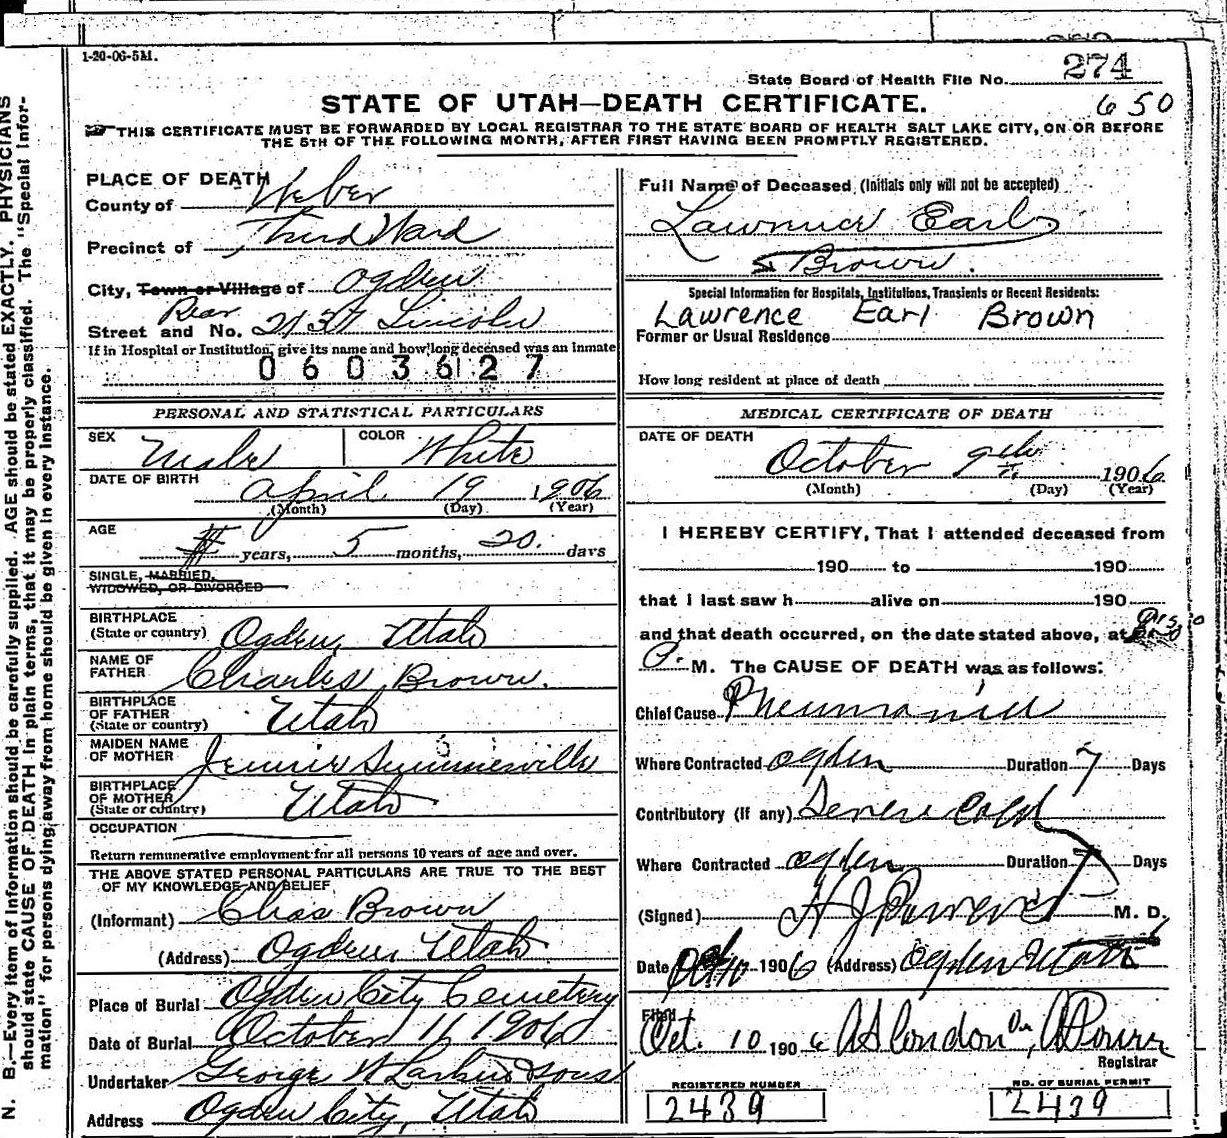 1-20-06-5M.
State Board of Health File No. 274
STATE OF UTAH—DEATH CERTIFICATE.
650
THIS CERTIFICATE MUST BE FORWARDED BY LOCAL REGISTRAR TO THE STATE BOARD OF HEALTH SALT LAKE CITY, ON OR BEFORE
THE 5TH OF THE FOLLOWING MONTH, AFTER FIRST HAVING BEEN PROMPTLY REGISTERED.
PLACE OF DEATH
County of Weber
Precinct of Third Ward
City, Town or Village of Ogden
Rear
Street and No. 2137 Lincoln
If in Hospital or Institution, give its name and how long deceased was an inmate
0603627
PERSONAL AND STATISTICAL PARTICULARS
SEX Male COLOR White
DATE OF BIRTH April 19 1906
(Month) (Day) (Year)
AGE years, 5 months, 20. days
SINGLE, MARRIED,
WIDOWED, OR DIVORCED
BIRTHPLACE
(State or country) Ogden, Utah
NAME OF
FATHER Charles Brown.
BIRTHPLACE
OF FATHER
(State or country) Utah
MAIDEN NAME
OF MOTHER Jennie
BIRTHPLACE
OF MOTHER
(State or country) Utah
OCCUPATION
Return remunerative employment for all persons 10 years of age and over.
THE ABOVE STATED PERSONAL PARTICULARS ARE TRUE TO THE BEST
OF MY KNOWLEDGE AND BELIEF
(Informant) Chas Brown
(Address) Ogden, Utah
Place of Burial Ogden City Cemetery
Date of Burial October 11, 1906
Undertaker George W Larkin & Sons
Address Ogden City, Utah
Full Name of Deceased (Initials only will not be accepted)
Lawrence Earl
Brown.
Special Information for Hospitals, Institutions, Transients or Recent Residents:
Lawrence Earl Brown
Former or Usual Residence
How long resident at place of death
MEDICAL CERTIFICATE OF DEATH
DATE OF DEATH
October 9th 1906
(Month) (Day) (Year)
I HEREBY CERTIFY, That I attended deceased from
190 to 190
that I last saw h alive on 190
and that death occurred, on the date stated above, at
P. M. The CAUSE OF DEATH was as follows:
Chief Cause Pneumonia
Where Contracted Ogden Duration 7 Days
Contributory (if any) Severe Cold
Where Contracted Ogden Duration 7 Days
(Signed) H J Powers M. D.
Date Oct 10 1906 (Address) Ogden Utah
Filed
Oct. 10 1906
Registrar
REGISTERED NUMBER
2439
NO. OF BURIAL PERMIT
2439
N. B.—Every item of information should be carefully supplied. AGE should be stated EXACTLY. PHYSICIANS
should state CAUSE OF DEATH in plain terms, that it may be properly classified. The "Special Infor-
mation" for persons dying away from home should be given in every instance.